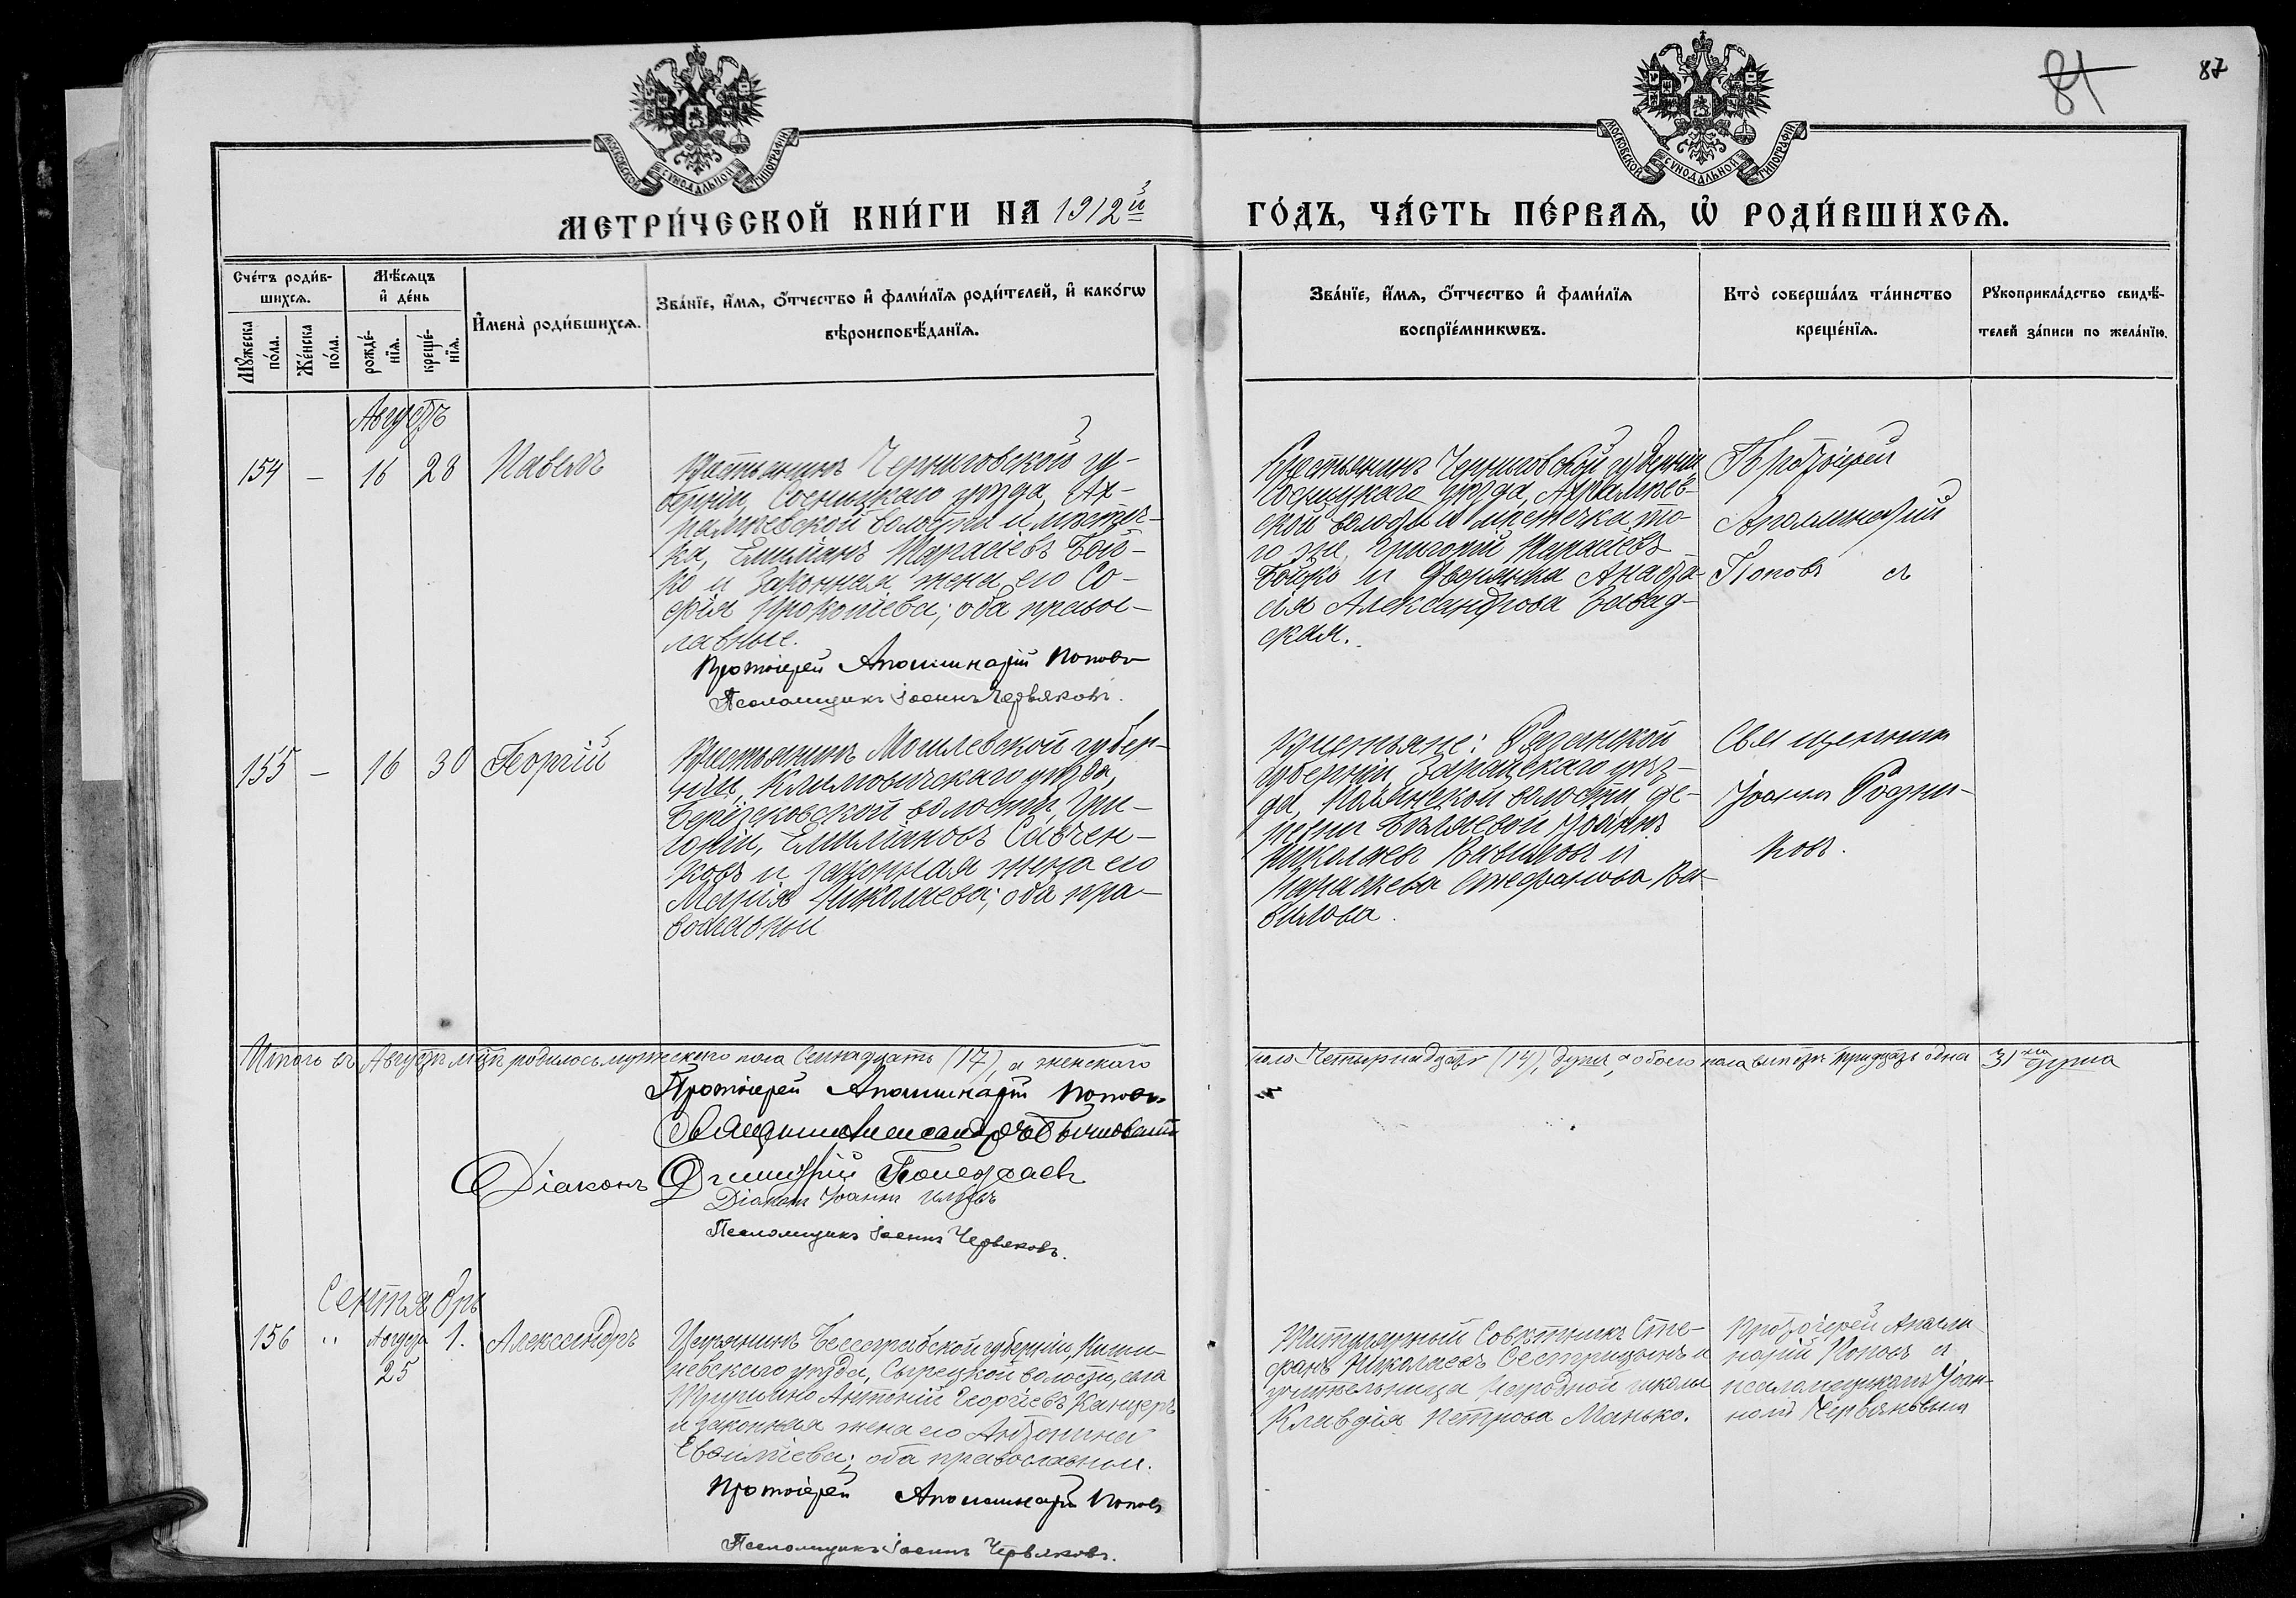 81
87
МОСКОВСКОЙ СѴНОДАЛЬНОЙ ТИПОГРАФІИ
МОСКОВСКОЙ СѴНОДАЛЬНОЙ ТИПОГРАФІИ
МЕТРИ́ЧЕСКОЙ КНИ́ГИ НА 1912й ГО́ДЪ, ЧА́СТЬ ПЕ́РВАѦ, Ѡ҆ РОДИ́ВШИХСѦ.
Сче́тъ роди́в-
шихсѧ.
Мꙋ́жеска по́ла.
Же́нска по́ла.
Мѣ́сѧцъ и҆ де́нь
рожде́-нїѧ.
креще́-нїѧ.
И҆мена̀ роди́вшихсѧ.
Зва́нїе, и҆́мѧ, ѻ҆́тчество и҆ фами́лїѧ роди́телей, и҆ како́гѡ
вѣроисповѣ́данїѧ.
Зва́нїе, и҆́мѧ, ѻ҆́тчество и҆ фами́лїѧ
воспрїе́мникѡвъ.
Кто̀ соверша́лъ та́инство
креще́нїѧ.
Рꙋкоприкла́дство свидѣ́-
телей за́писи по жела́нїю.
Августъ
154 – 16 28 Павелъ
Крестьянинъ Черниговской гу-
берніи, Сосницкаго уѣзда, Ах-
рамѣевской волости и мѣстеч-
ка, Емиліанъ Тарасіевъ Бой-
ко и законная жена его Со-
фія Прокопіева; оба правос-
лавные.
Протоіерей Аполлинарій Поповъ
Псаломщикъ Іоаннъ Червяковъ.
Крестьянинъ Черниговской губерніи
Сосницкаго уѣзда, Ахрамѣев-
ской волости и мѣстечка то-
го же, Григорій Тарасіевъ
Бойко и Дворянка Анаста-
сія Александрова Завад-
ская.
Протоіерей
Аполлинарій
Поповъ съ
155 – 16 30 Георгій
Крестьянинъ Могилевской губер-
ніи, Климовичскаго уѣзда,
волости, Гри-
горій Емиліановъ Савчен-
ковъ и законная жена его
Марія Николаева; оба пра-
вославные
Крестьяне: Рязанской
губерніи, Зарайскаго уѣз-
да, волости де-
ревни Бѣляевой Іоаннъ
Николаевъ Вавиловъ и
Стефанова Ва-
вилова.
Священникъ
Іоаннъ Родни-
ковъ.
Итого въ Августѣ м-цѣ родилось мужескаго пола Семнадцать (17), а женскаго
пола Четырнадцать (14), душъ, а обоего пола вмѣстѣ тридцать одна 31 душа
Протоіерей Аполлинарій Поповъ
Священникъ Александръ
Діаконъ Димитрій
Діаконъ Іоаннъ
Псаломщикъ Іоаннъ Червяковъ.
Сентябрь
156 " Августа 25 1. Александръ
Бессарабской губерніи, Киши-
невскаго уѣзда, Сырецкой волости, села
Антоній Георгіевъ Канцеръ
и законная жена его Антонина
Евѳиміева; оба православные.
Протоіерей Аполлинарій Поповъ
Псаломщикъ Іоаннъ Червяковъ.
Титулярный Совѣтникъ Сте-
фанъ Николаевъ Сестрицынъ и
учительница народной школы
Клавдія Петрова Манько.
Протоіерей Аполли-
нарій Поповъ съ
псаломщикомъ Іоан-
номъ Червяковымъ